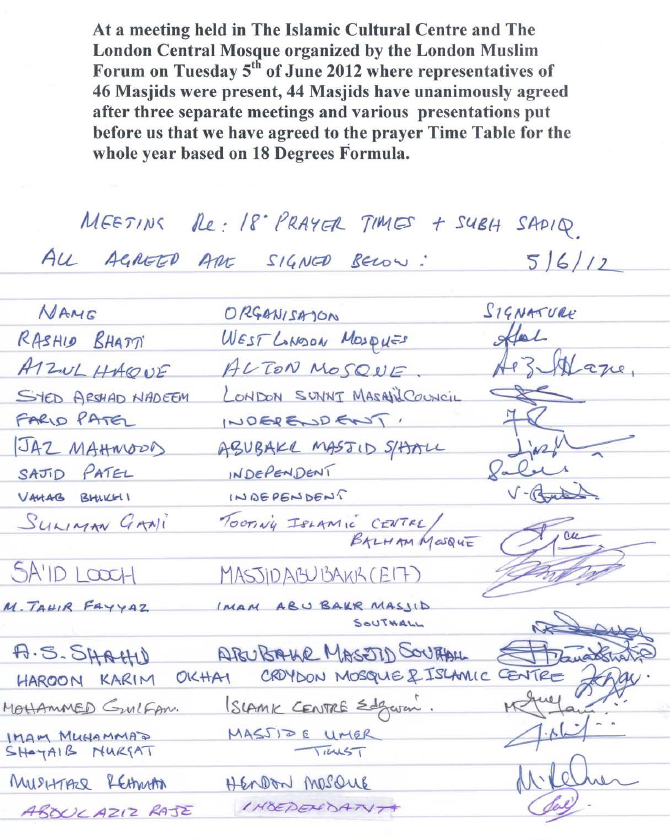 At a meeting held in The Islamic Cultural Centre and The
London Central Mosque organized by the London Muslim
Forum on Tuesday 5th of June 2012 where representatives of
46 Masjids were present, 44 Masjids have unanimously agreed
after three separate meetings and various presentations put
before us that we have agreed to the prayer Time Table for the
whole year based on 18 Degrees Formula.
MEETING Re: 18° PRAYER TIMES + SUBH SADIQ.
ALL AGREED ARE SIGNED BELOW: 5/6/12
NAME ORGANISATION SIGNATURE
RASHID BHATTI WEST LONDON MOSQUES
AIZUL HAQUE ACTON MOSQUE. Aizul Haque,
SYED ARSHAD NADEEM LONDON SUNNI MASAJID COUNCIL
FARID PATEL INDEPENDENT.
IJAZ MAHMOOD ABUBAKR MASJID S/HALL
SAJID PATEL INDEPENDENT
VAHAB BHIKHI INDEPENDENT
SULIMAN GANI TOOTING ISLAMIC CENTRE/
BALHAM MOSQUE
SA'ID LOOCH MASJID ABU BAKR (E17)
M. TAHIR FAYYAZ IMAM ABU BAKR MASJID
SOUTHALL
A.S. SHAHID ABUBAKR MASJID SOUTHALL
HAROON KARIM OKHAI CROYDON MOSQUE & ISLAMIC CENTRE
MOHAMMED GULFAM. ISLAMIC CENTRE Edgware.
IMAM MUHAMMAD MASJID E UMER
SHOYAIB NURGAT TRUST
MUSHTAQ REHMAN HENDON MOSQUE M. Rehman
ABDUL AZIZ RAJE INDEPENDANT